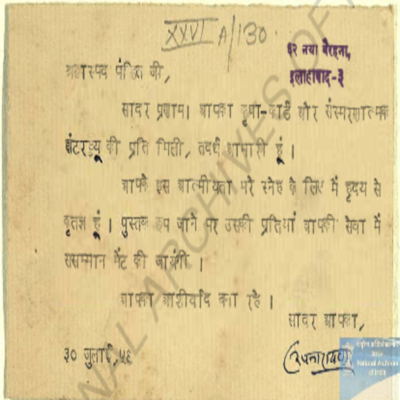 XXVI A/130
६२ नया बैरहना,
इलाहाबाद-३
श्रद्धास्पद पंडित जी,
सादर प्रणाम। आपका कृपा-कार्ड और संस्मरणात्मक
इंटरव्यू की प्रति मिली, तदर्थ आभारी हूं।
आपके इस आत्मीयता भरे स्नेह के लिए मैं हृदय से
कृतज्ञ हूं। पुस्तक छप जाने पर उसकी प्रतियां आपकी सेवा में
ससम्मान भेंट की जायेंगी।
आपका आशीर्वाद बना रहे।
सादर आपका,
३० जुलाई, ५६
National Archives
of India